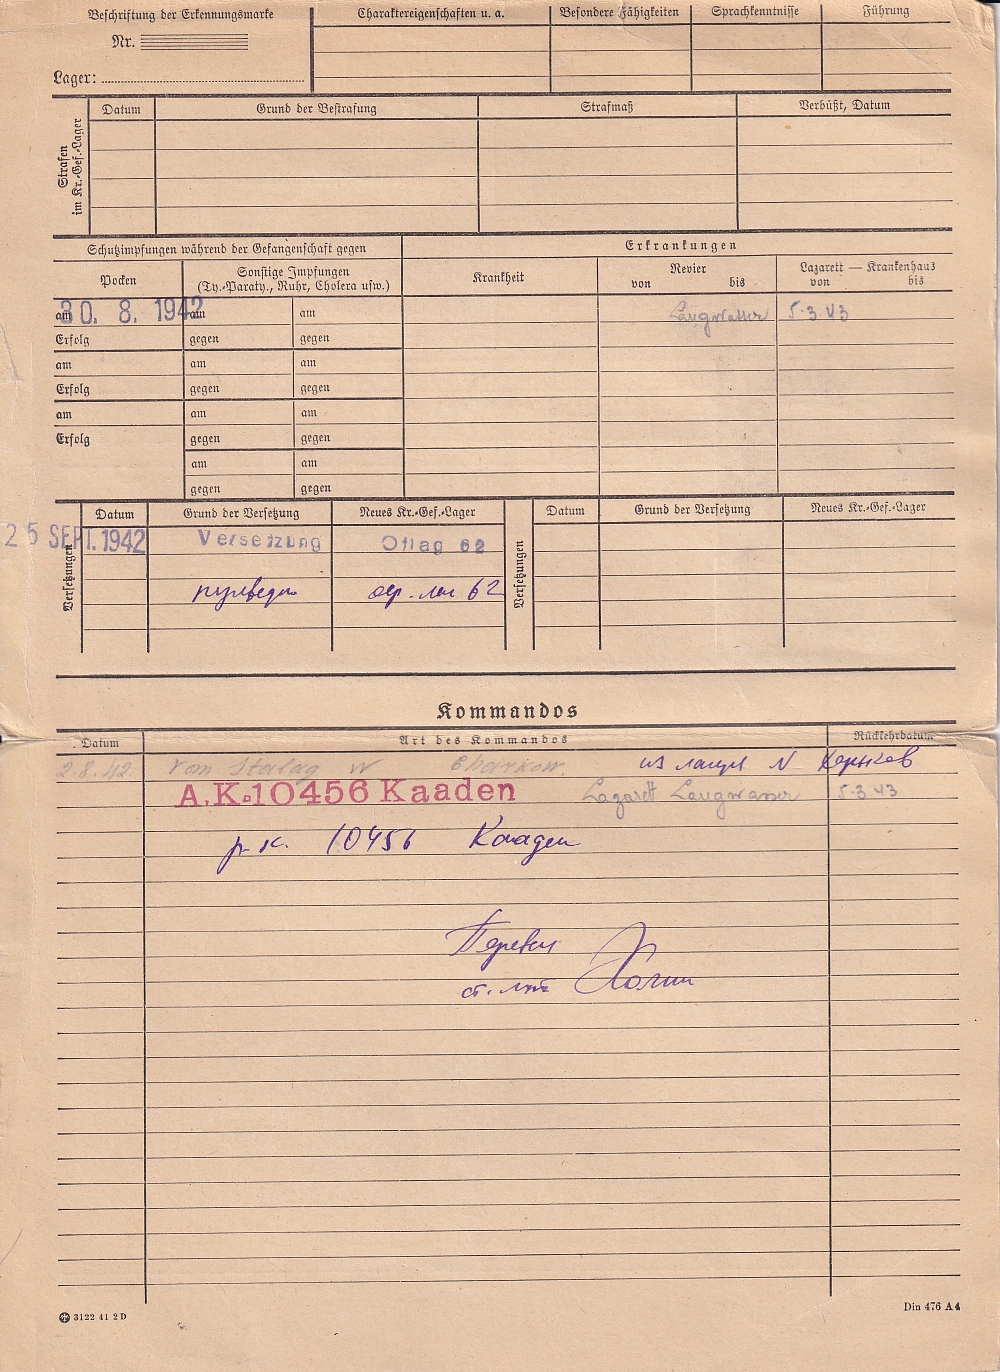 Beschriftung der Erkennungsmarke
Nr.
Lager:
Charaktereigenschaften u. a.
Besondere Fähigkeiten
Sprachkenntnisse
Führung
Strafen
im Kr.-Gef.-Lager
Datum
Grund der Bestrafung
Strafmaß
Verbüßt, Datum
Schutzimpfungen während der Gefangenschaft gegen
Erkrankungen
Pocken
Sonstige Impfungen
(Ty.-Paraty., Ruhr, Cholera usw.)
Krankheit
Revier
von bis
Lazarett — Krankenhaus
von bis
am 30. 8. 1942 am am
Langwasser 5.3.43
Erfolg gegen gegen
am am am
Erfolg gegen gegen
am am am
Erfolg gegen gegen
am am
gegen gegen
Versetzungen
Datum Grund der Versetzung Neues Kr.-Gef.-Lager
25 SEPT. 1942 Versetzung Oflag 62
62
Versetzungen
Datum Grund der Versetzung Neues Kr.-Gef.-Lager
Kommandos
Datum Art des Kommandos Rückkehrdatum
2.8.42 Vom Stalag Charkow из лагеря Харьков
A.K. 10456 Kaaden Lazarett Langwasser 5.3.43
р.к. 10456 Кааден
Перевел
ст. л-т
3122 41 2 D
Din 476 A 4